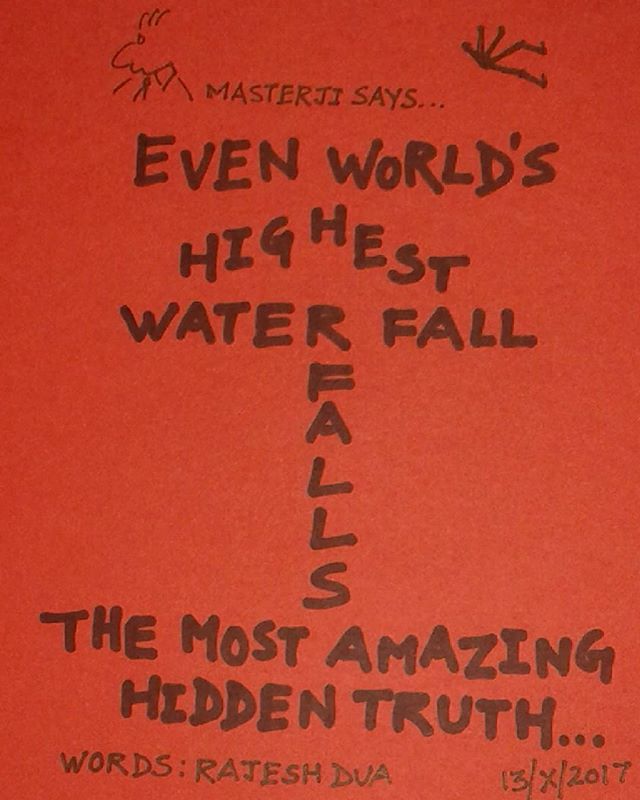 MASTERJI SAYS...
EVEN WORLD'S
HIGHEST
WATER FALL
F
A
L
L
S
THE MOST AMAZING
HIDDEN TRUTH...
WORDS: RAJESH DUA
13/X/2017